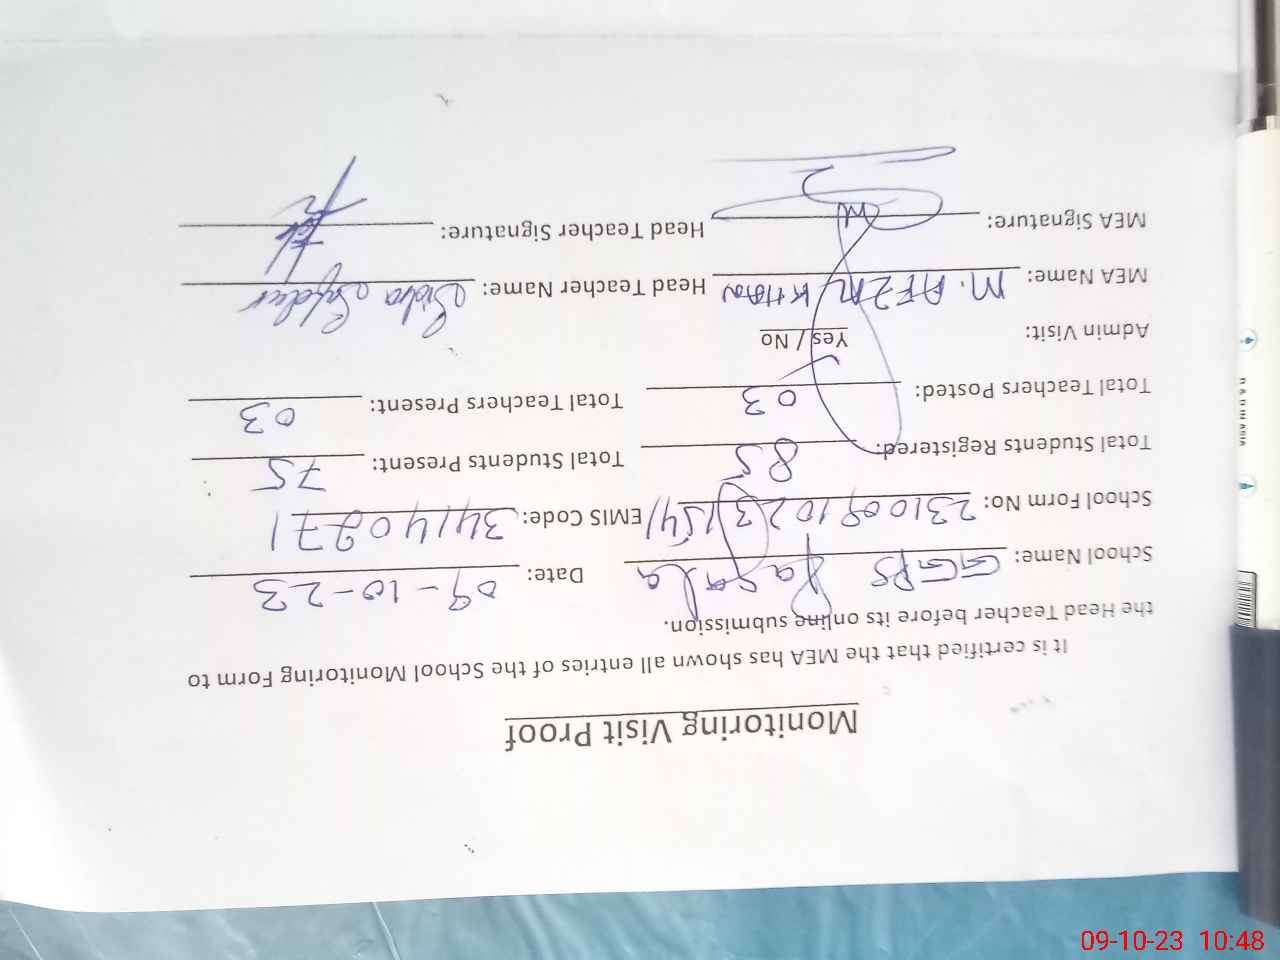 Monitoring Visit Proof
It is certified that the MEA has shown all entries of the School Monitoring Form to
the Head Teacher before its online submission.
School Name: GGPS Date: 09-10-23
School Form No: EMIS Code:
Total Students Registered: 85 Total Students Present: 75
Total Teachers Posted: 03 Total Teachers Present: 03
Admin Visit: Yes / No
MEA Name: M. KHAN Head Teacher Name: Sidra Safdar
MEA Signature: Head Teacher Signature:
09-10-23 10:48